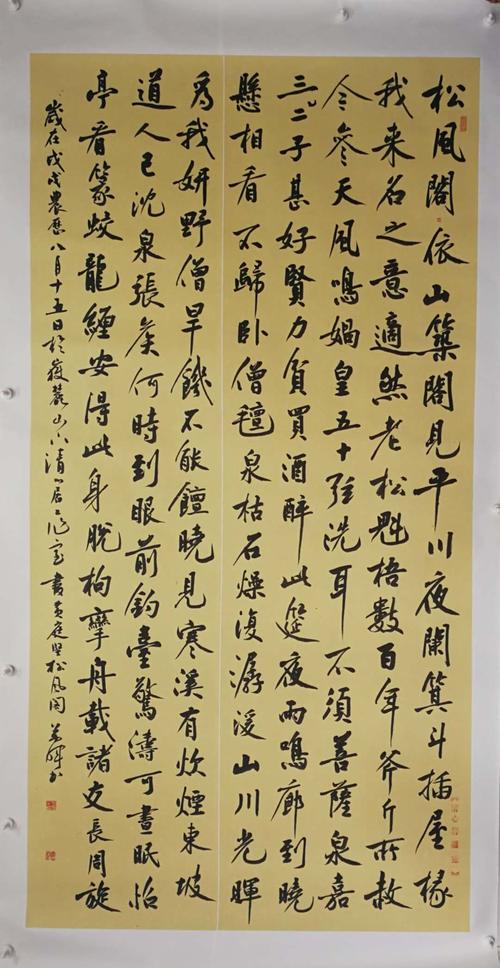 松風閣依山築閣見平川夜闌箕斗插屋椽
我来名之意適然老松魁梧數百年斧斤所赦
今參天風鳴媧皇五十弦洗耳不須菩薩泉嘉
三二子甚好賢力貧買酒醉此筵夜雨鳴廊到曉
懸相看不歸臥僧氈泉枯石燥復潺湲山川光暉
為我妍野僧旱饑不能饘曉見寒溪有炊煙東坡
道人已沈泉張侯何時到眼前釣臺驚濤可晝眠怡
亭看篆蛟龍纏安得此身脫拘攣舟載諸友長周旋
歲在戊戌農歷八月十五日於嶽麓山清居室書黃庭堅松風閣